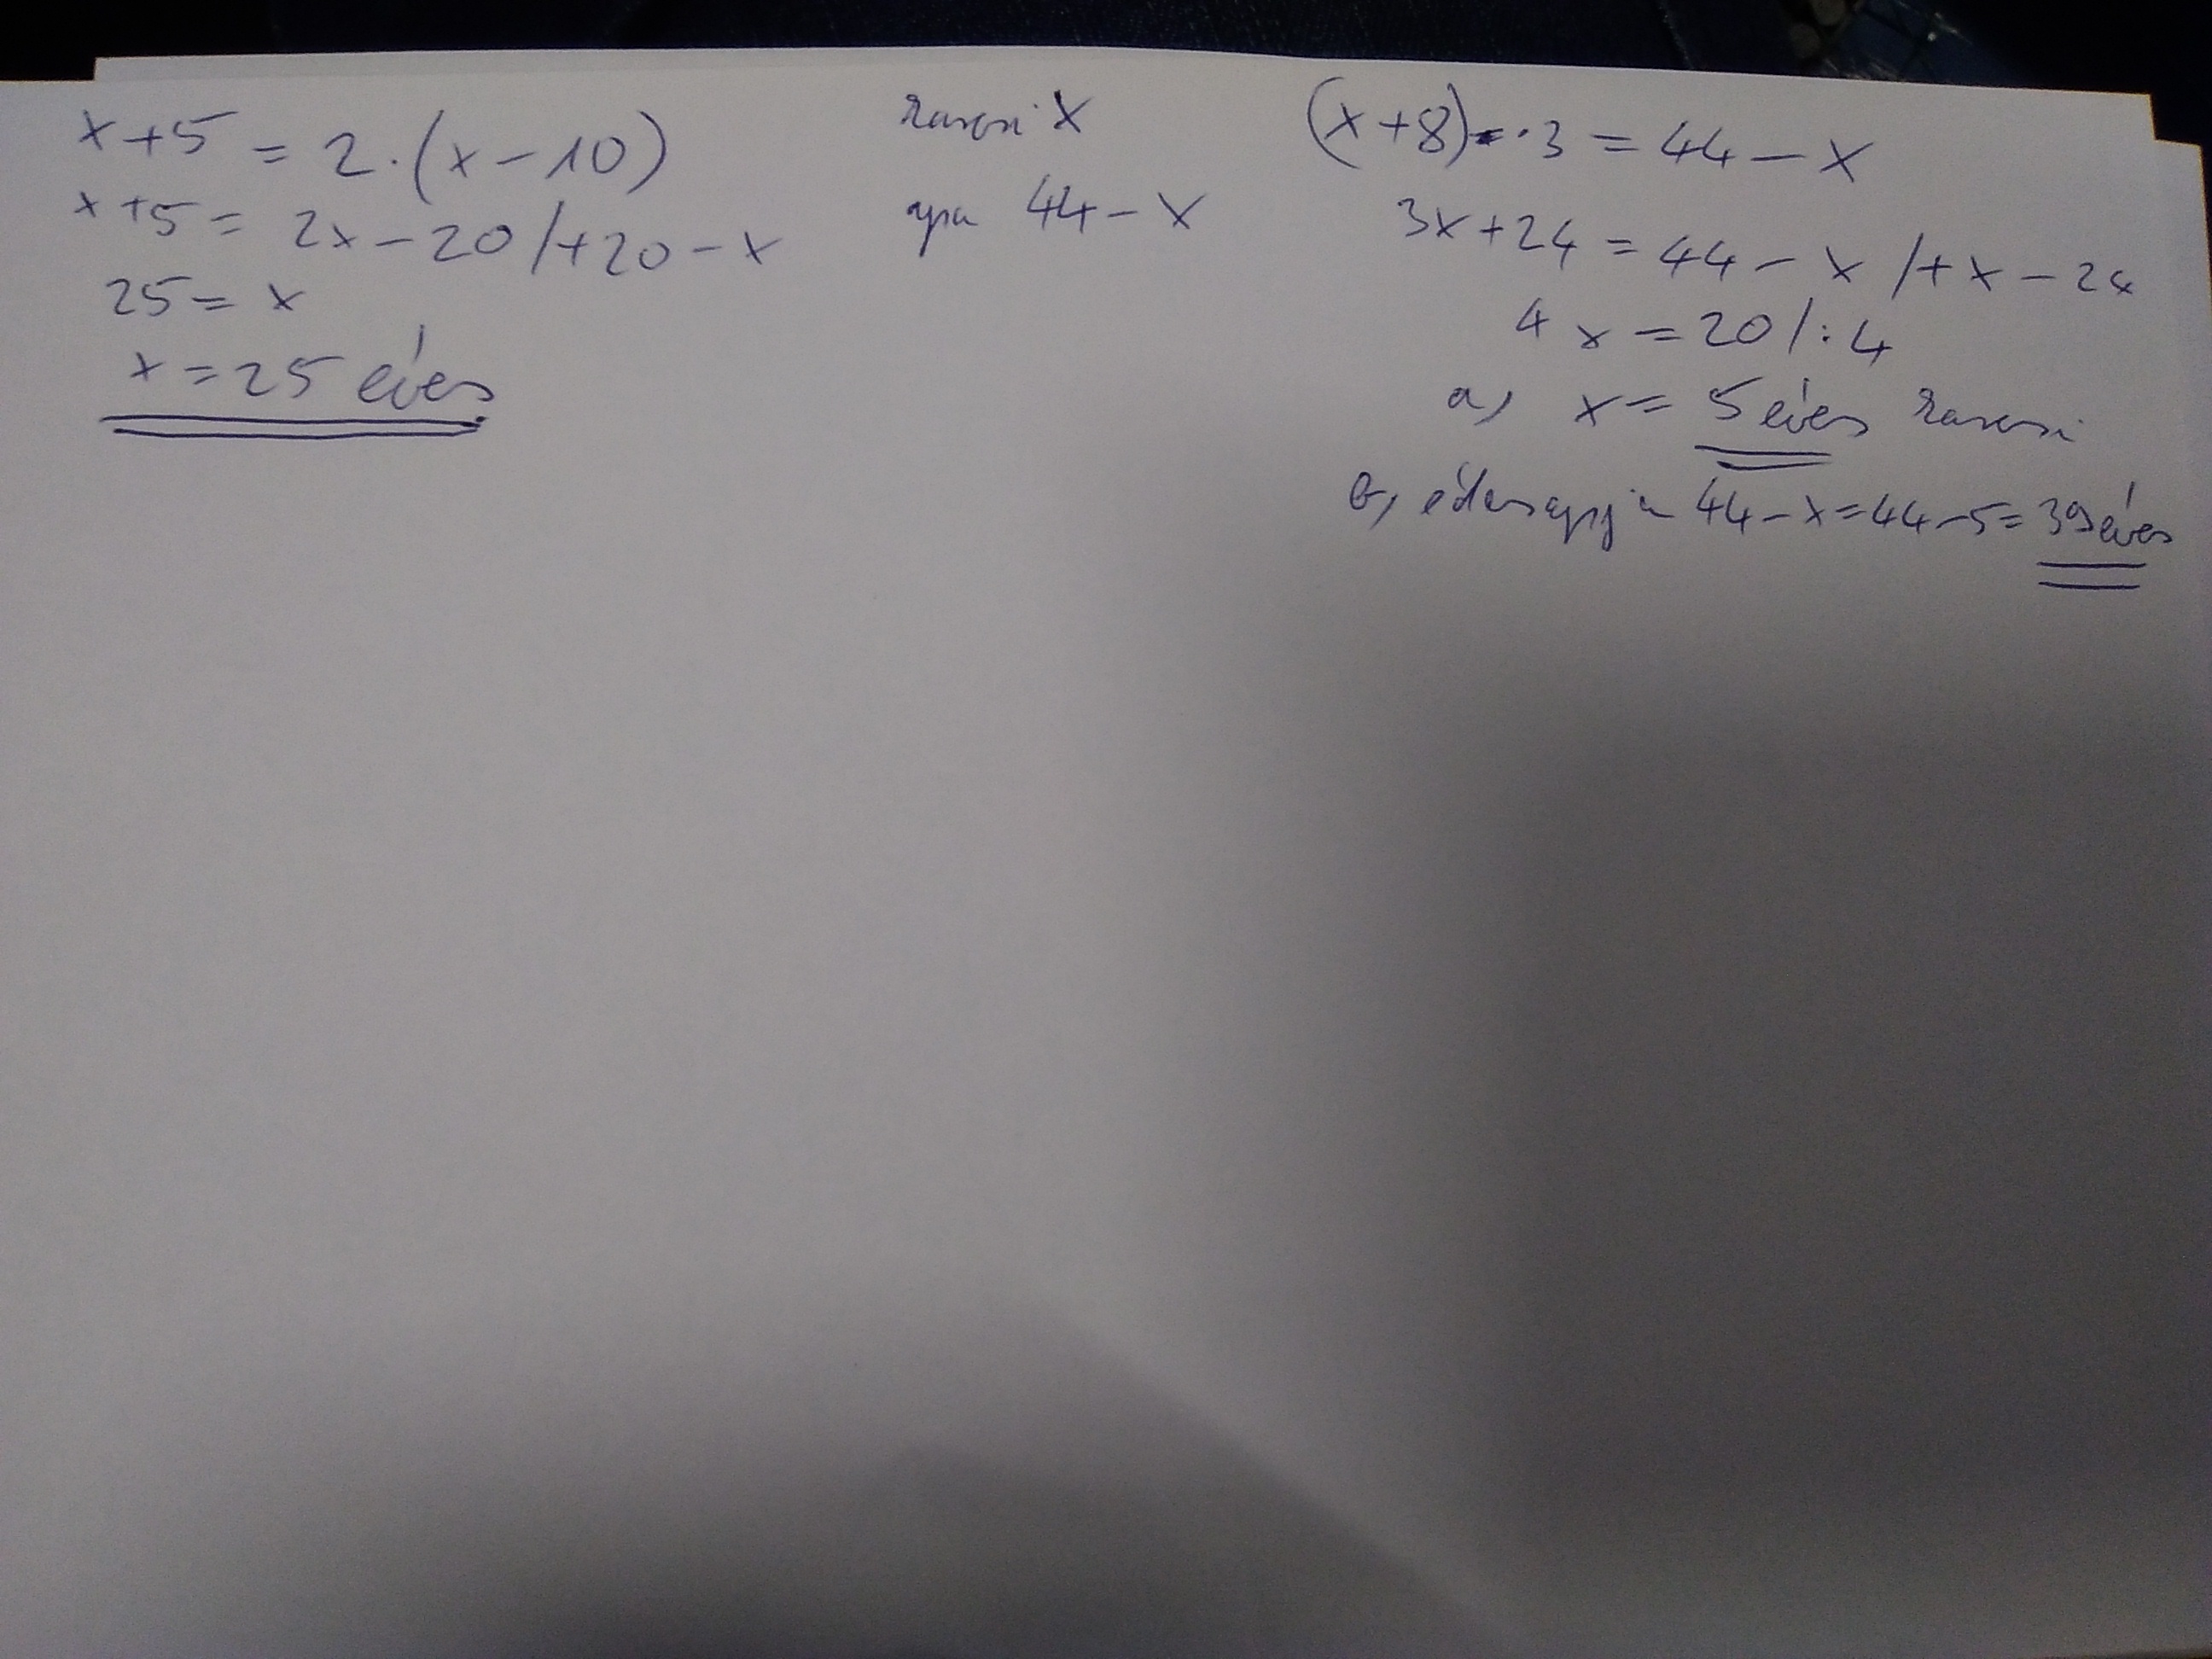 x+5 = 2·(x-10)
x+5 = 2x-20 /+20-x
25 = x
x = 25 éves
x
apa 44-x
(x+8)·3 = 44-x
3x+24 = 44-x /+x-24
4x = 20 /:4
a) x = 5 éves
b) édesapja 44-x=44-5= 39 éves